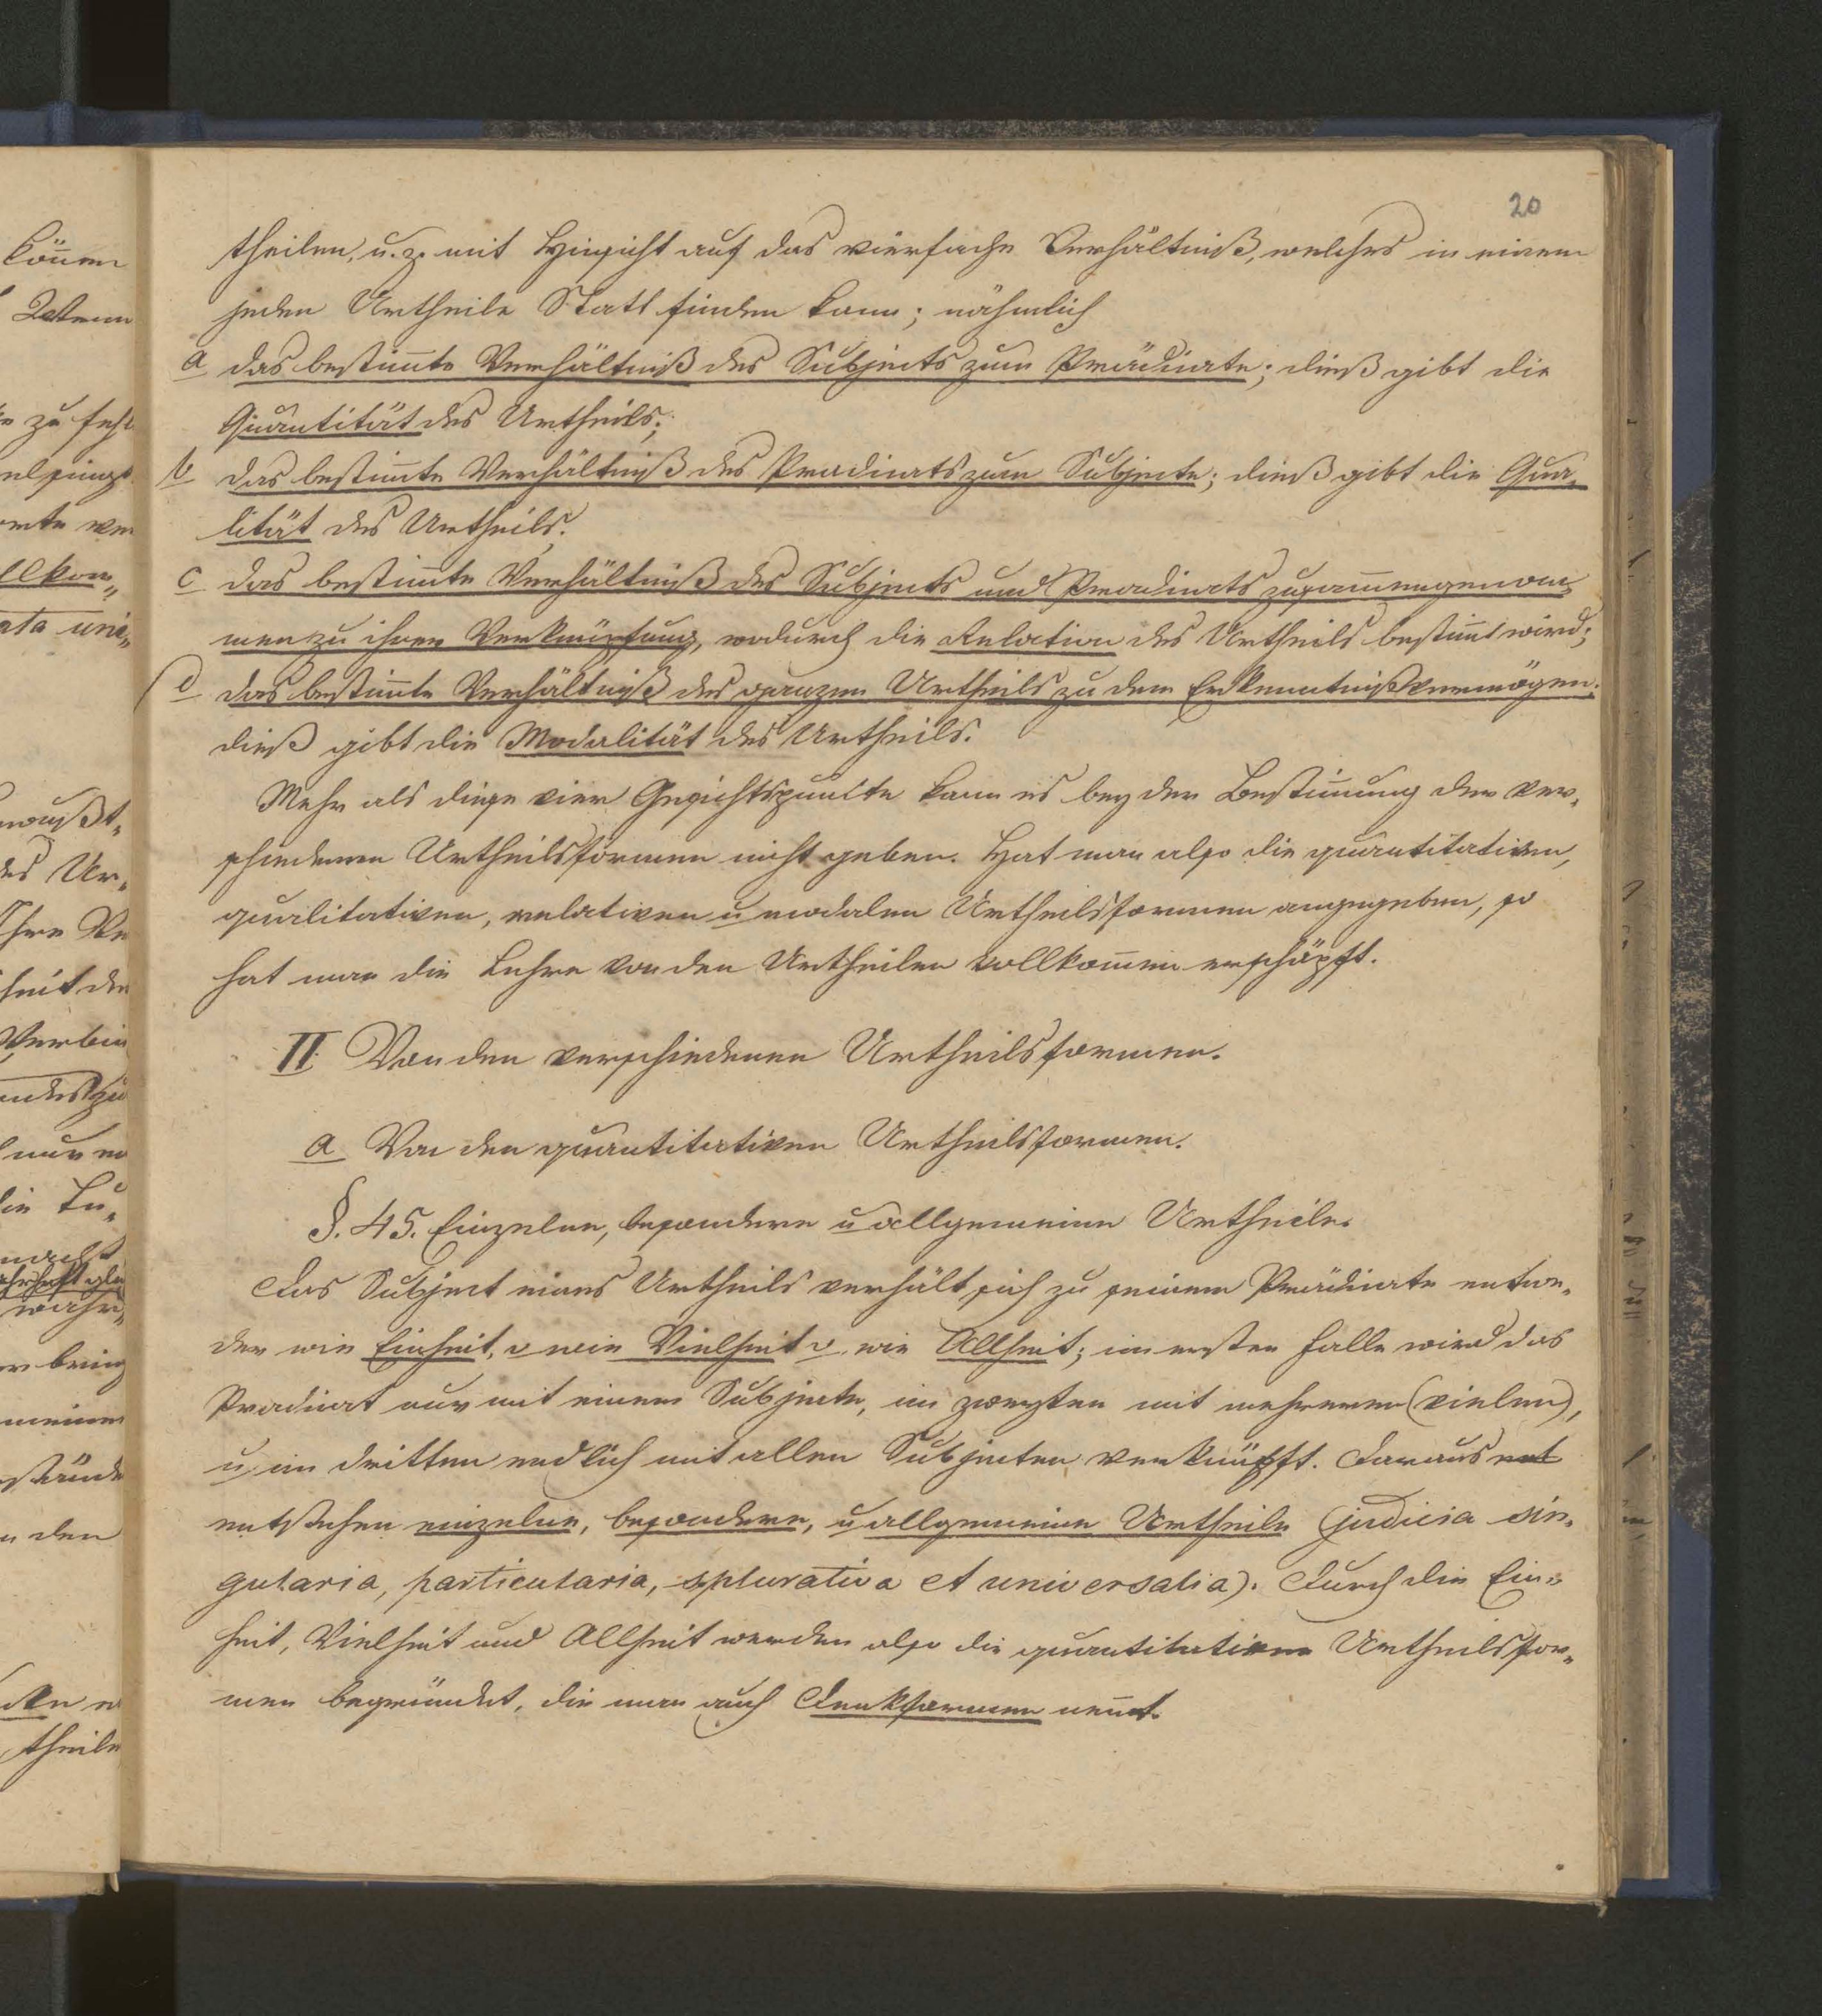 20
theilen, u. z. mit Hinsicht auf das vierfache Verhältniß, welches in einem
jeden Urtheile Statt finden kann; nähmlich
a das bestim̄te Verhältniß des Subjects zum Prädicate; dieß gibt die
Quantität des Urtheils;
b das bestim̄te Verhältniß des Pradicats zum Subjecte; dieß gibt die Qua„
lität des Urtheils.
c das bestim̄te Verhältniß des Subjects und Pradicats zusam̄mengenom„
men zu ihrer Verknüpfung, wodurch die Relation des Urtheils bestim̄t wird;
d das bestim̄te Verhältniß des ganzen Urtheils zu dem Erkenntnißvermögen;
dieß gibt die Modalität des Urtheils.
Mehr als diese vier Gesichtspunkte kann es bey der Bestim̄ung der ver„
schiedenen Urtheilsformen nicht geben. Hat man also die quantitativen,
qualitativen, relativen u modalen Urtheilsformen angegeben, so
hat man die Lehre von den Urtheilen vollkom̄en erschöpft.
II Von den verschiedenen Urtheilsformen.
a Von den quantitativen Urtheilsformen.
§. 45. Einzelne, besondere u allgemeine Urtheile.
Das Subject eines Urtheils verhält sich zu seinem Prädicate entwe„
der wie Einheit, o wie Vielheit o. wie Allheit; im ersten Falle wird das
Pradicat nur mit einem Subjecte, im zweyten mit mehreren (vielen),
u im dritten endlich mit allen Subjecten verknüpft. Daraus ent
entstehen einzelne, besondere, u allgemeine Urtheile (judicia sin„
gularia, particularia, s plurativa et universalia). Durch die Ein„
heit, Vielheit und Allheit werden also die quantitativen Urtheilsfor„
men begründet, die man auch Denkformen nen̄t.